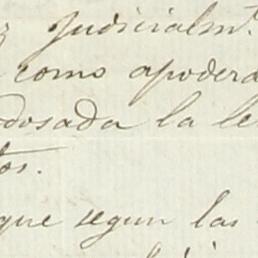 Judicialmt.
como apodera
dosada la le
tos.
que segun las